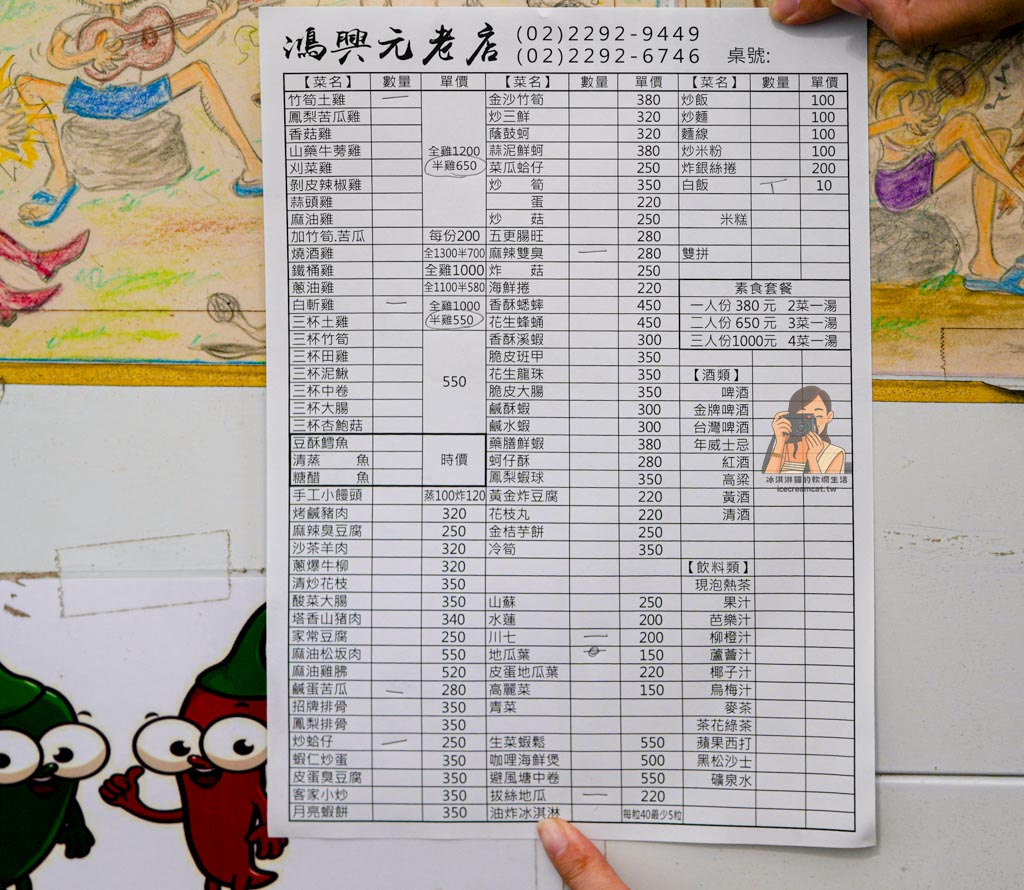 鴻興元老店 (02)2292-9449
(02)2292-6746 桌號:
【菜名】 數量 單價 【菜名】 數量 單價 【菜名】 數量 單價
竹筍土雞 一 金沙竹筍 380 炒飯 100
鳳梨苦瓜雞 炒三鮮 320 炒麵 100
香菇雞 蔭鼓蚵 320 麵線 100
山藥牛蒡雞 全雞1200 蒜泥鮮蚵 380 炒米粉 100
刈菜雞 半雞650 菜瓜蛤仔 250 炸銀絲捲 200
剝皮辣椒雞 炒 筍 350 白飯 丅 10
蒜頭雞 蛋 220
麻油雞 炒 菇 250 米糕
加竹筍.苦瓜 每份200 五更腸旺 280
燒酒雞 全1300半700 麻辣雙臭 一 280 雙拼
鐵桶雞 全雞1000 炸 菇 250
蔥油雞 全1100半580 海鮮捲 220 素食套餐
白斬雞 一 全雞1000 香酥蟋蟀 450 一人份 380 元 2菜一湯
三杯土雞 半雞550 花生蜂蛹 450 二人份 650 元 3菜一湯
三杯竹筍 香酥溪蝦 300 三人份1000元 4菜一湯
三杯田雞 脆皮班甲 350
三杯泥鰍 550 花生龍珠 350 【酒類】
三杯中卷 脆皮大腸 350 啤酒
三杯大腸 鹹酥蝦 300 金牌啤酒
三杯杏鮑菇 鹹水蝦 300 台灣啤酒
豆酥鱈魚 藥膳鮮蝦 380 年威士忌
清蒸 魚 時價 蚵仔酥 280 紅酒
糖醋 魚 鳳梨蝦球 350 高粱
手工小饅頭 蒸100炸120 黃金炸豆腐 220 黃酒
烤鹹豬肉 320 花枝丸 220 清酒
麻辣臭豆腐 250 金桔芋餅 250
沙茶羊肉 320 冷筍 350
蔥爆牛柳 320 【飲料類】
清炒花枝 350 現泡熱茶
酸菜大腸 350 山蘇 250 果汁
塔香山豬肉 340 水蓮 200 芭樂汁
家常豆腐 250 川七 一 200 柳橙汁
麻油松坂肉 550 地瓜葉 150 蘆薈汁
麻油雞胇 520 皮蛋地瓜葉 220 椰子汁
鹹蛋苦瓜 一 280 高麗菜 150 烏梅汁
招牌排骨 350 青菜 麥茶
鳳梨排骨 350 茶花綠茶
炒蛤仔 一 250 生菜蝦鬆 550 蘋果西打
蝦仁炒蛋 350 咖哩海鮮煲 500 黑松沙士
皮蛋臭豆腐 350 避風塘中卷 550 礦泉水
客家小炒 350 拔絲地瓜 一 220
月亮蝦餅 350 油炸冰淇淋 每粒40最少5粒
冰淇淋貓的軟爛生活
icecreamcat.tw